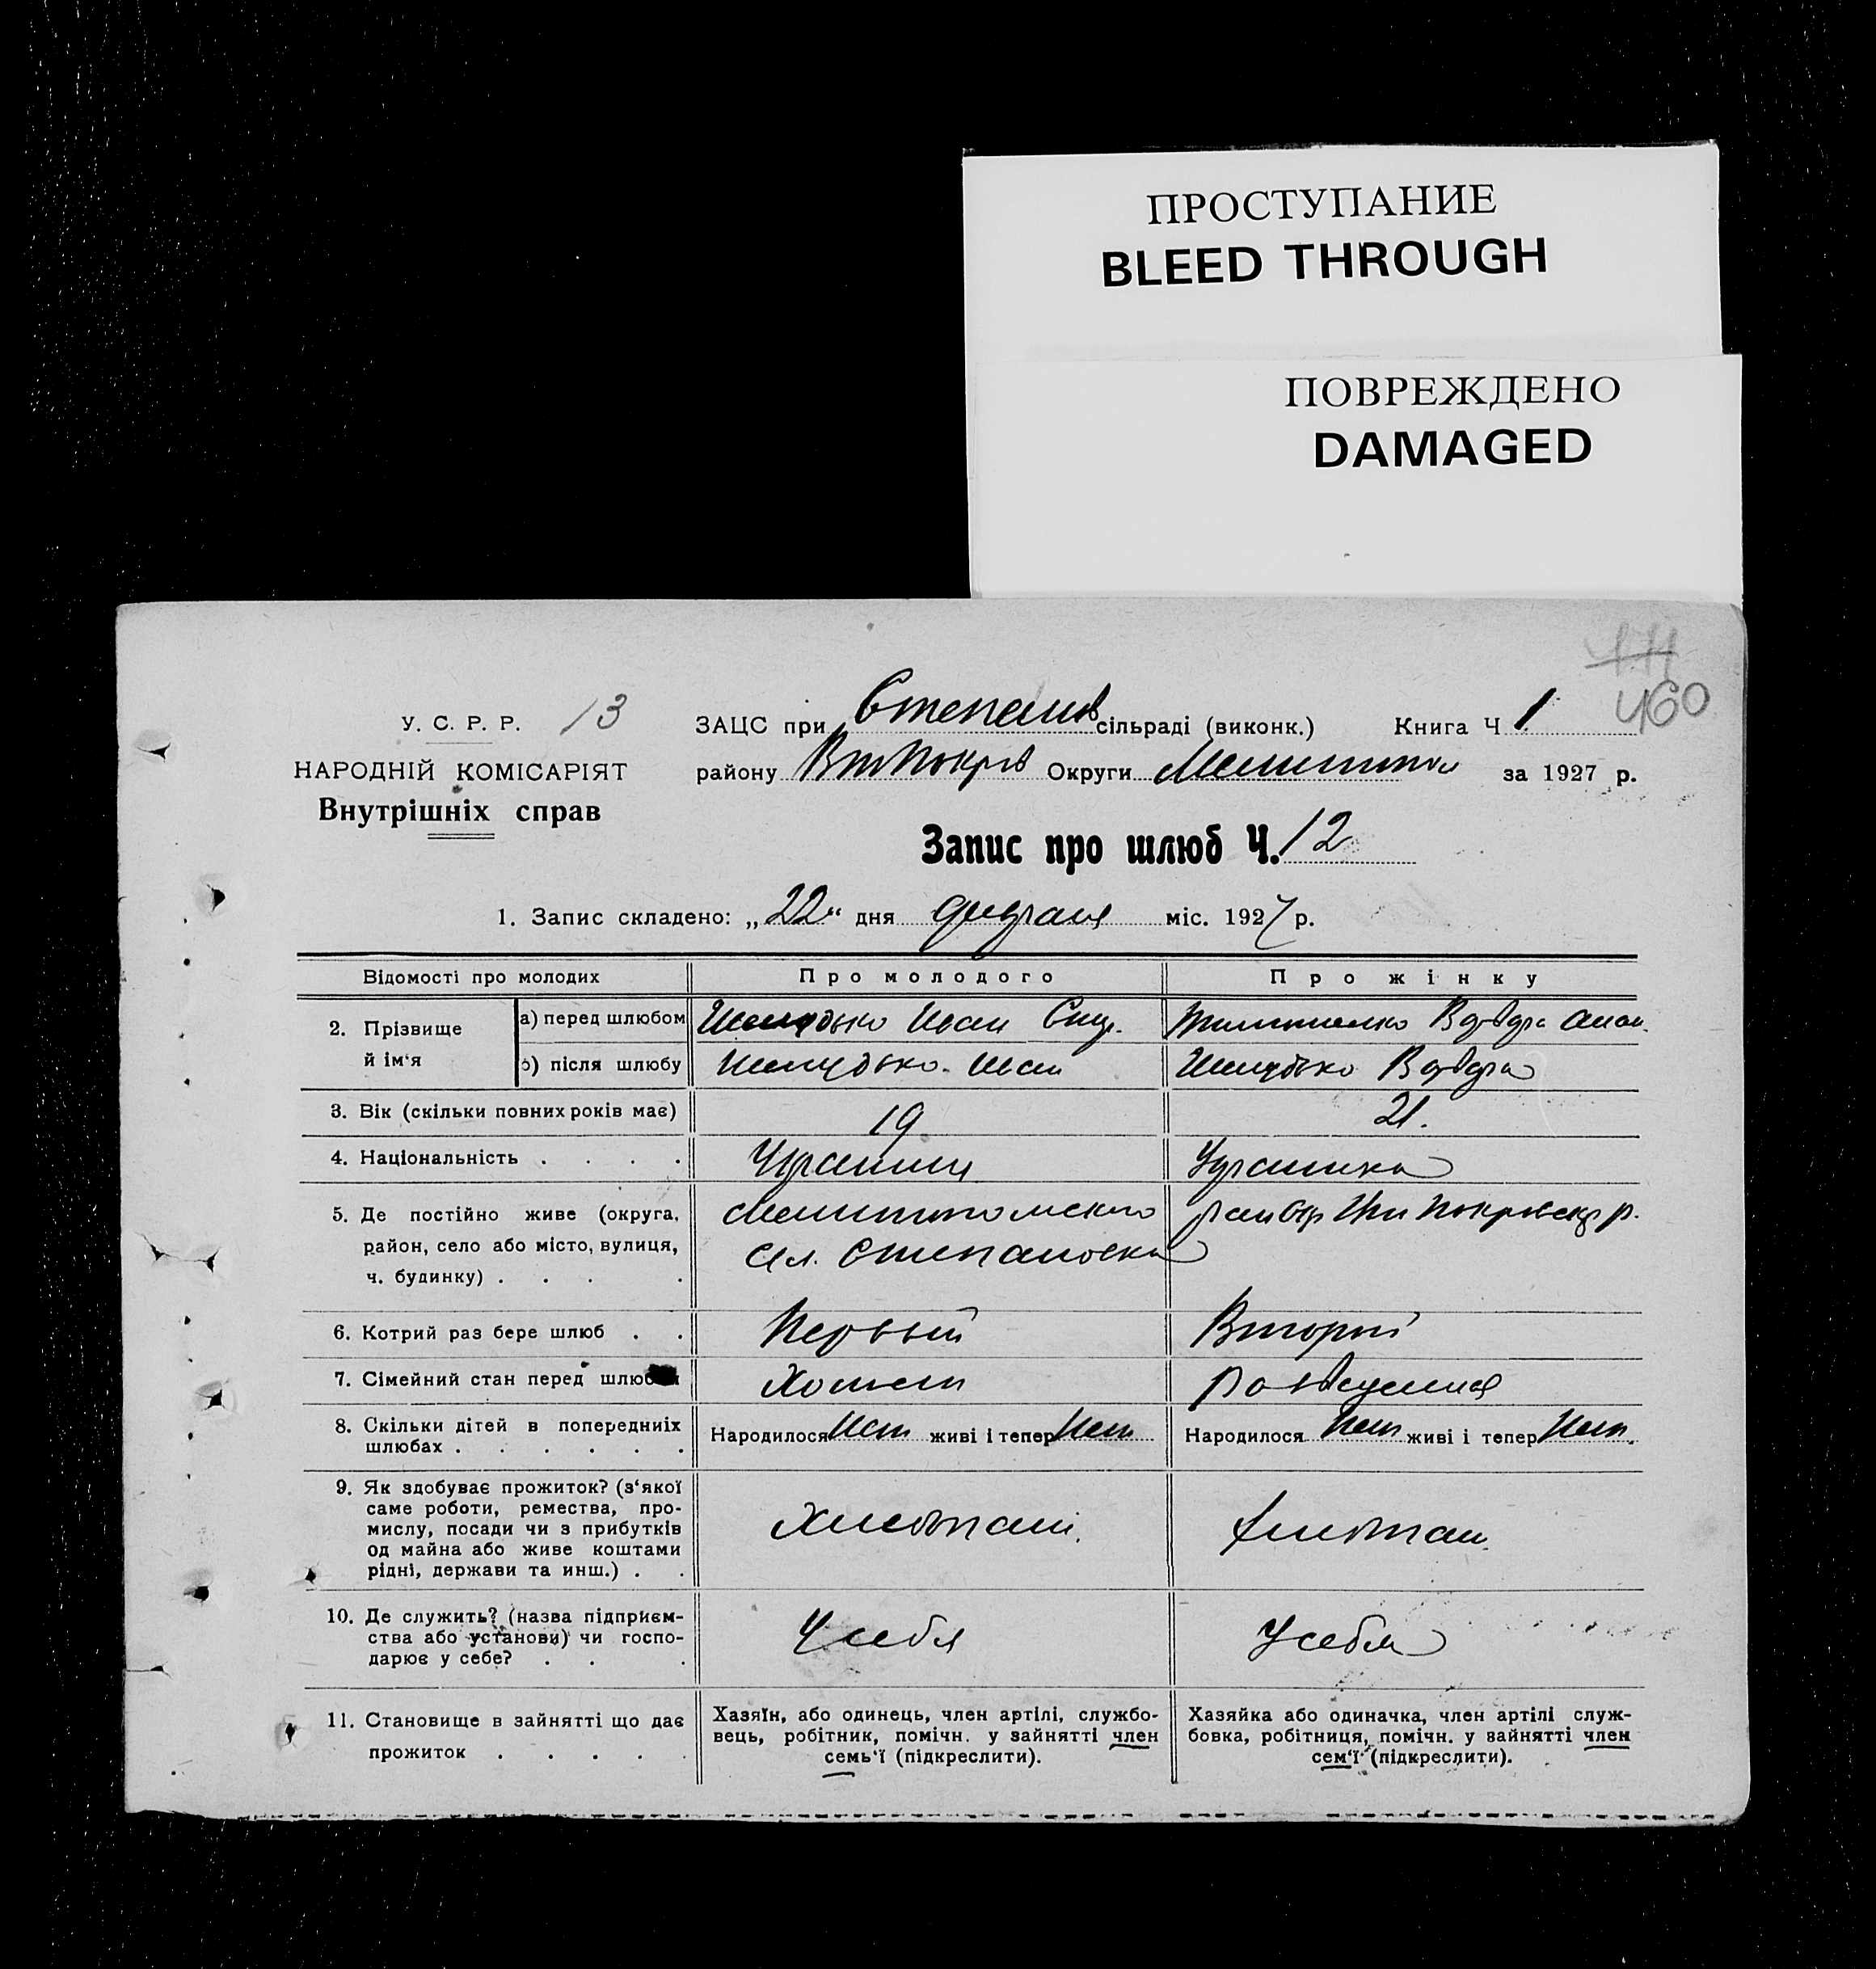 ПРОСТУПАНИЕ
BLEED THROUGH
ПОВРЕЖДЕНО
DAMAGED
460
У. С. Р. Р. 13
НАРОДНІЙ КОМІСАРІЯТ
Внутрішніх справ
ЗАЦС при Степанов сільраді (виконк.) Книга Ч 1
району Округи за 1927 р.
Запис про шлюб Ч. 12
1. Запис складено: „22“ дня февраля міс. 1927 р.
Відомості про молодих Про молодого Про жінку
2. Прізвище й ім'я
а) перед шлюбом Иван
б) після шлюбу Иван
3. Вік (скільки повних років має) 19 21.
4. Національність . . . .
5. Де постійно живе (округа,
район, село або місто, вулиця,
ч. будинку) . . . .
Степановка
6. Котрий раз бере шлюб . . Первый Второй
7. Сімейний стан перед шлюбом Холост
8. Скільки дітей в попередниіх
шлюбах . . . . . .
Народилося Нет живі і тепер Нет Народилося Нет живі і тепер Нет.
9. Як здобуває прожиток? (з'якої
саме роботи, ремества, про-
мислу, посади чи з прибутків
од майна або живе коштами
рідні, держави та инш.) . .
10. Де служить? (назва підприєм-
ства або установи) чи госпо-
дарює у себе? . . .
У себя У себя
11. Становище в зайнятті що дає
прожиток . . . . .
Хазяїн, або одинець, член артілі, службо-
вець, робітник, помічн. у зайнятті член
семь'ї (підкреслити).
Хазяйка або одиначка, член артілі служ-
бовка, робітниця, помічн. у зайнятті член
сем'ї (підкреслити).